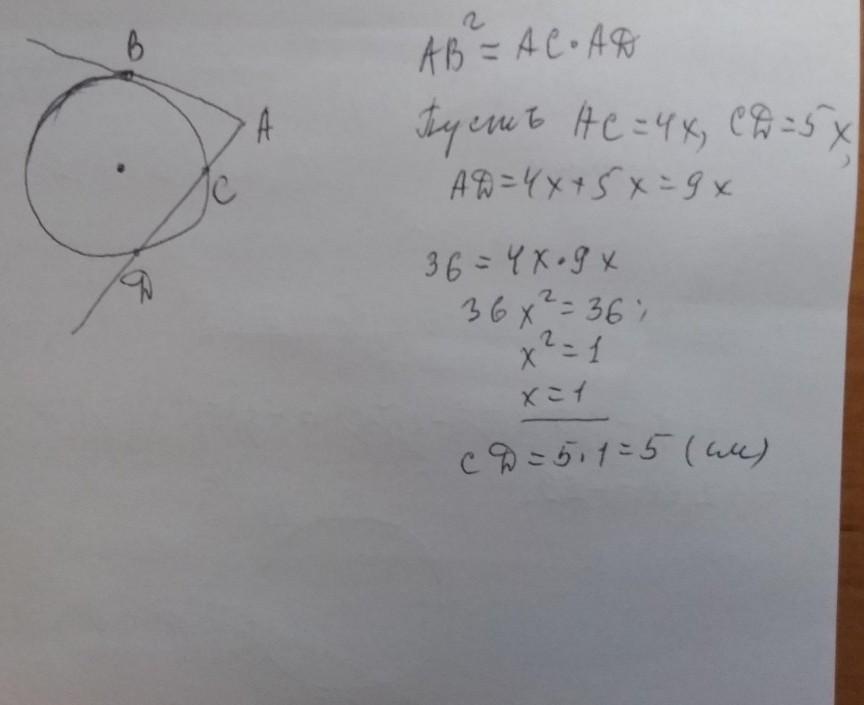 B
A
C
D
AB² = AC·AD
Пусть AC = 4x, CD = 5x,
AD = 4x + 5x = 9x
36 = 4x·9x
36x² = 36;
x² = 1
x = 1
CD = 5·1 = 5 (см)